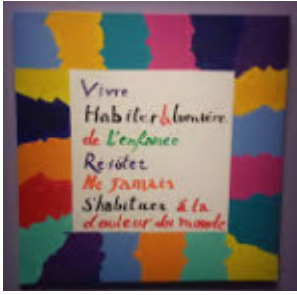 Vivre
Habiter la lumière
de l'enfance
Résister
Ne Jamais
S'habituer à la
douleur du monde